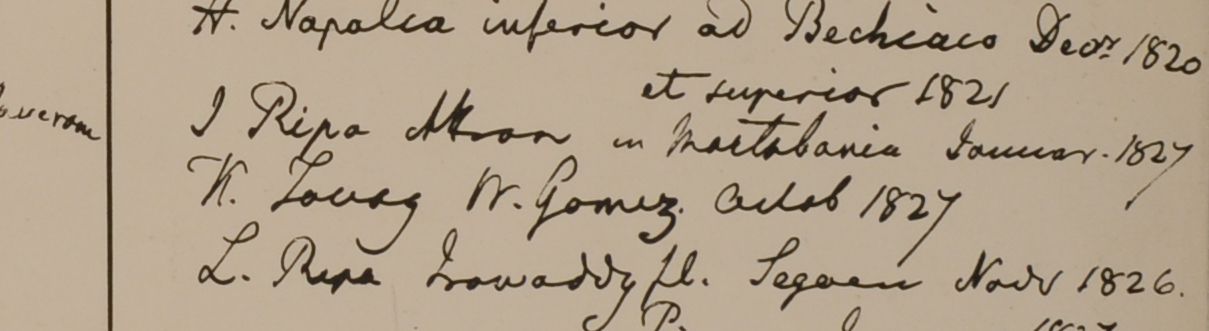 H. Napalia inferior ad Bechiaco Decr. 1820
et superior 1821
I Ripa Attran in Martabania Januar. 1827
K. Tavoy W. Gomez. Octob 1827
L. Ripa Irawaddy fl. Segaen Novr 1826.